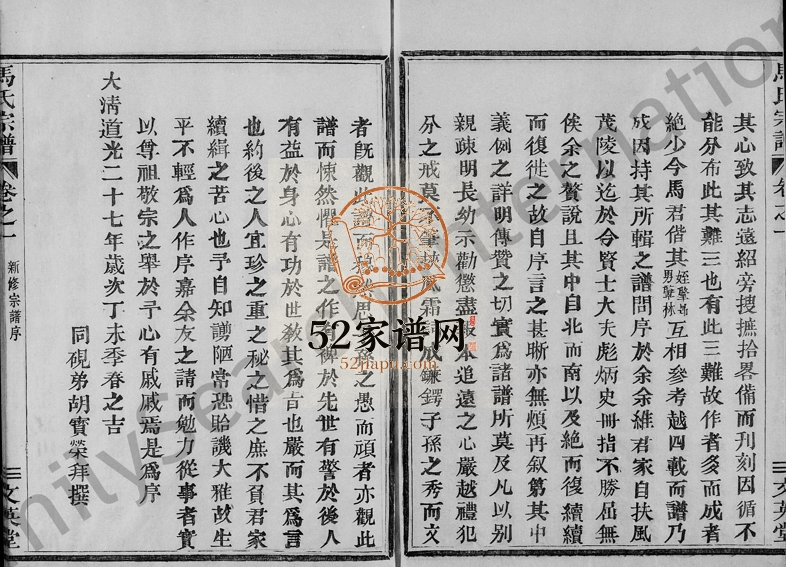 馬氏宗譜
卷之一
文英堂
其心致其志遠紹旁搜摭拾畧備而刋刻因循不
能分布此其難三也有此三難故作者多而成者
絶少今馬君偕其姪擎
男驥林互相參考越四載而譜乃
成因持其所輯之譜問序於余余維君家自扶風
茂陵以迄於今賢士大夫彪炳史冊指不勝屈無
俟余之贅說且其中自北而南以及絶而復續續
而復徙之故自序言之甚晰亦無煩再叙第其中
義例之詳明傳贊之切實爲諸譜所莫及凡以别
親疎明長幼示勸懲盡 本追遠之心嚴越禮犯
分之戒莫 筆 霜 成鐮鍔子孫之秀而文
者旣觀此譜而 思 孫之愚而頑者亦觀此
譜而悚然懼是譜之作 稗於先世有警於後人
有益於身心有功於世敎其爲吉也嚴而其爲言
也約後之人宜珍之重之秘之惜之庶不負君家
續緝之苦心也予自知謭陋常恐貽譏大雅故生
平不輕爲人作序嘉余友之請而勉力從事者實
以尊祖敬宗之舉於予心有戚戚焉是爲序
大淸道光二十七年歲次丁未季春之吉
同硯弟胡實榮拜撰
馬氏宗譜
卷之一
新修宗譜序
文英堂
52家谱网
52jiapu.com